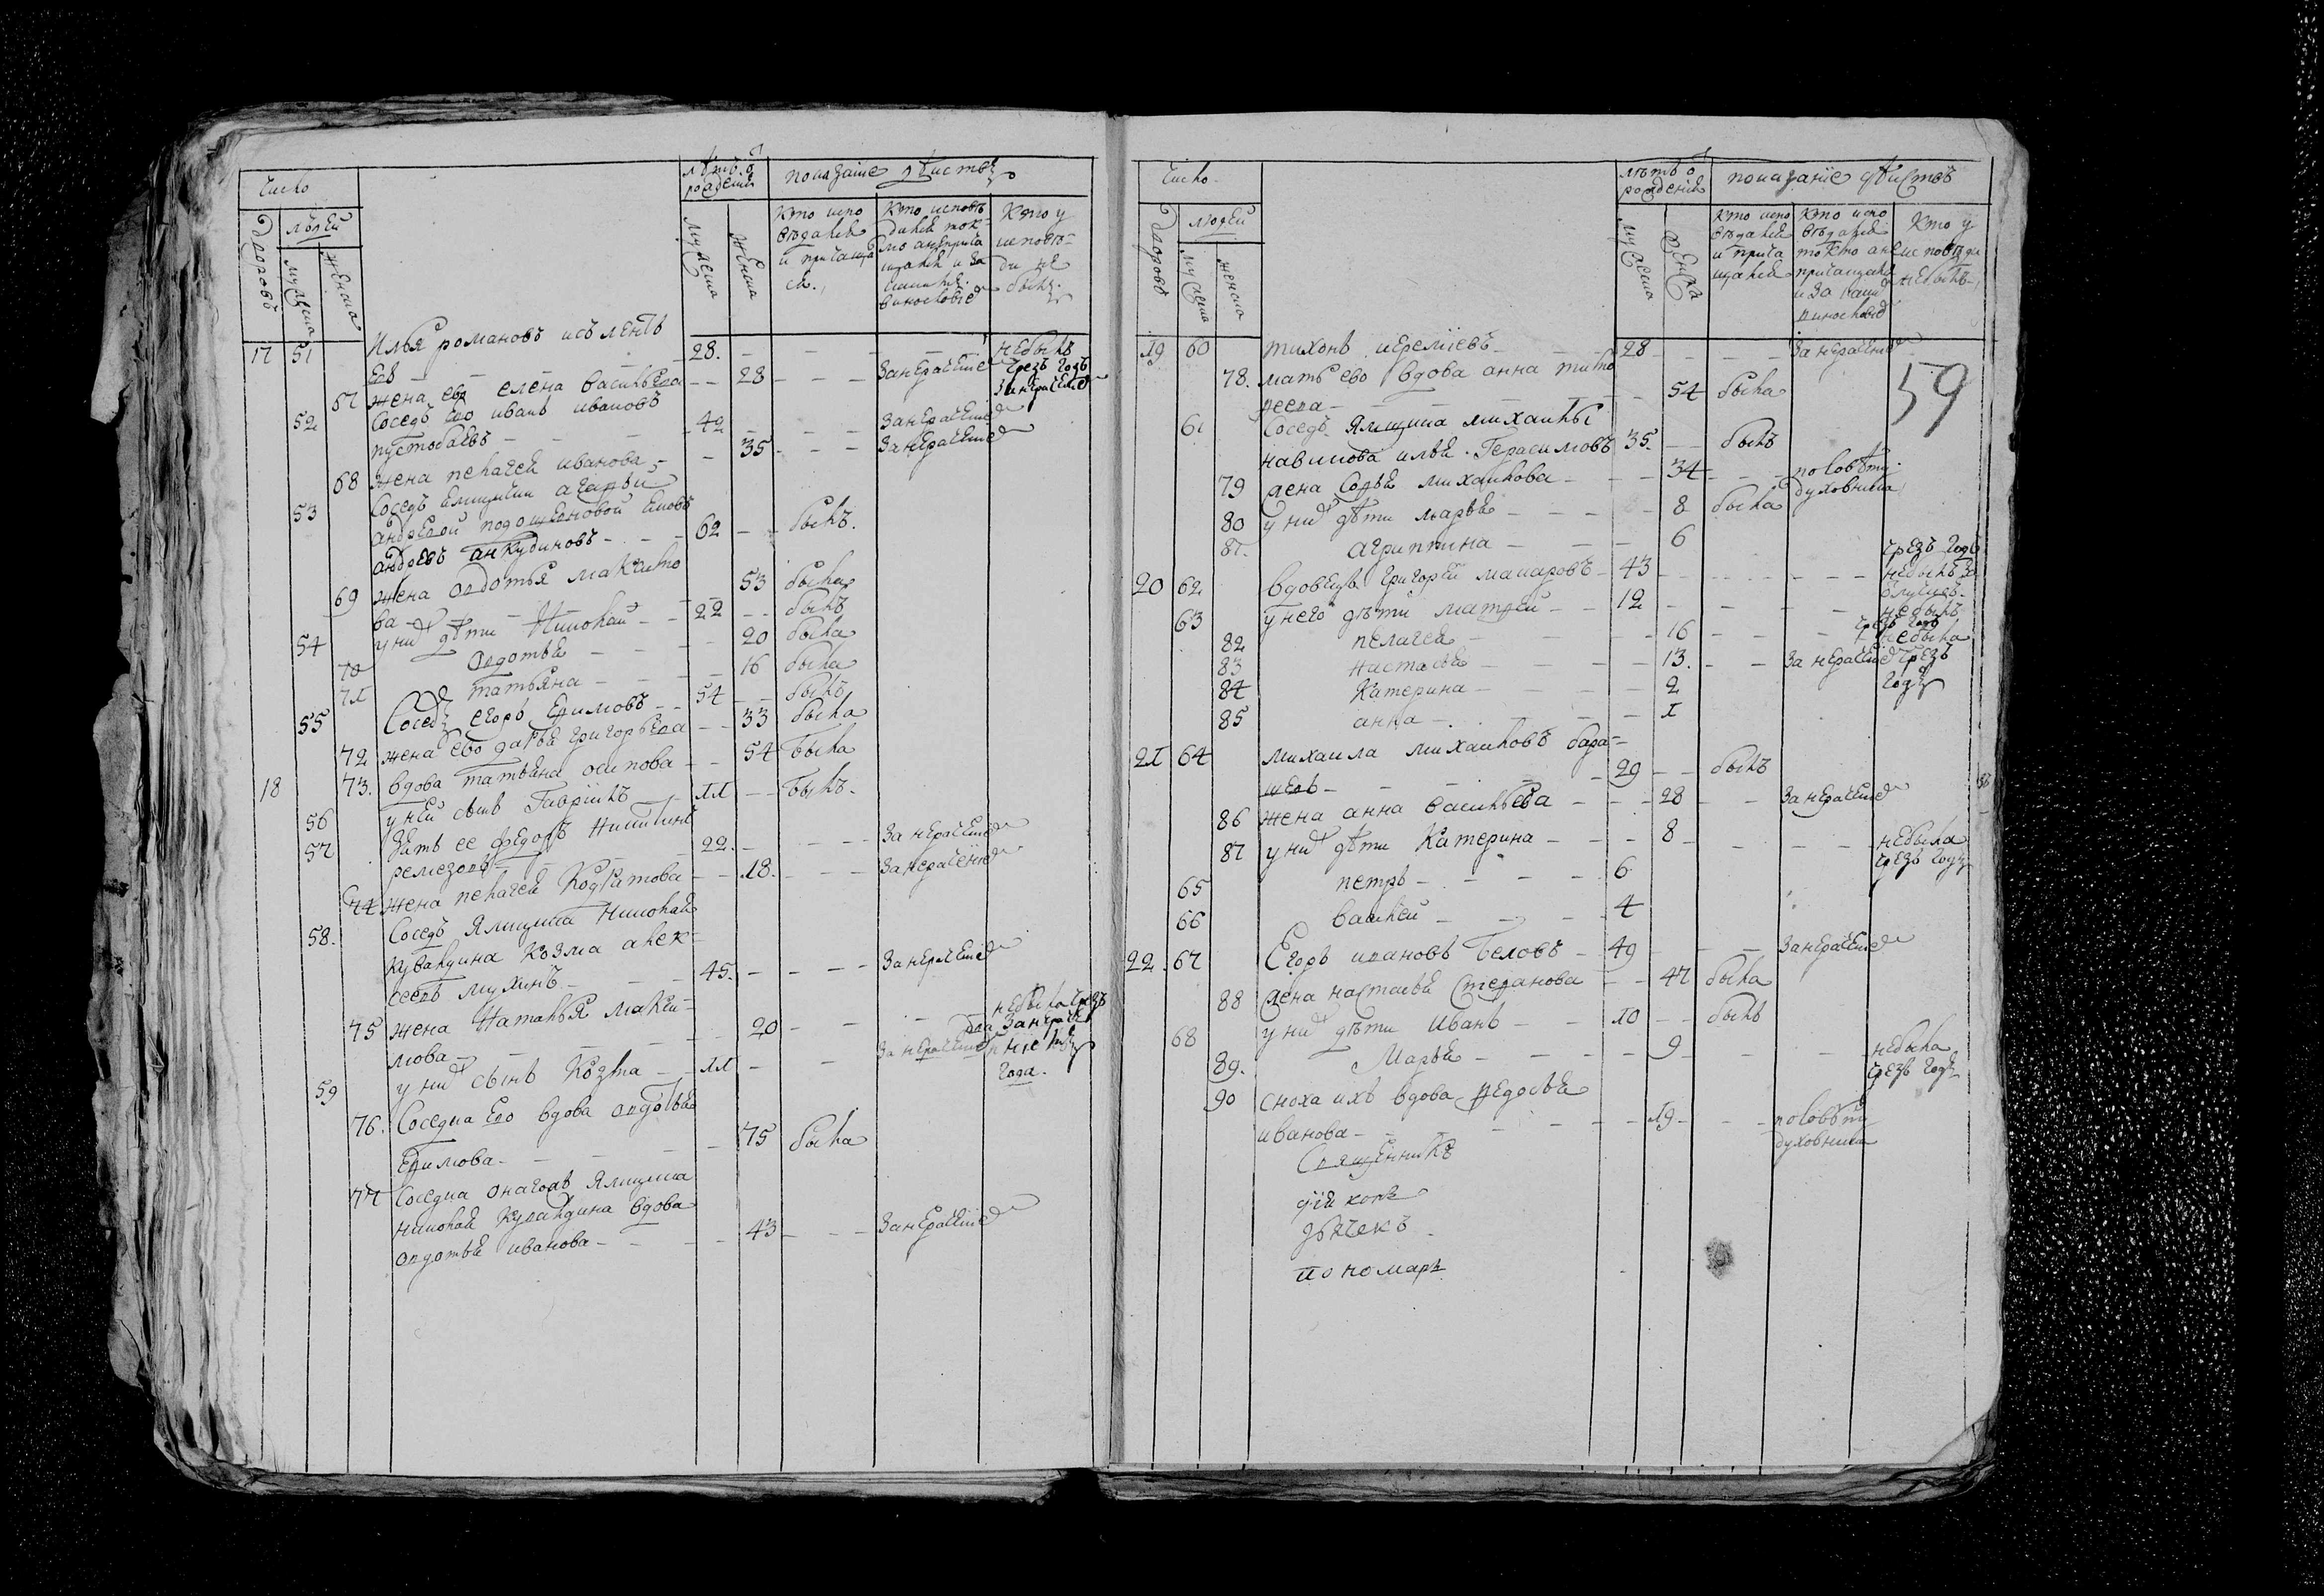 Число
лѣтъ о
рожденїи
показанїе дѣиствъ
дворовъ
людей
мужеска
женска
мужеска
женска
Кто испо
вѣдался
и причаща
ся.
Кто исповѣ
дался ток-
мо анепріча
щался и за
каким
винословіе
Кто у
исповѣ-
ди не
былъ.
17 51 Илья романовъ 28. небылъ
чрезъ годъ
занерачение
67 жена ево елена васильева 28 занерачение
52 Соседъ ево иванъ ивановъ
пустобаевъ 42 занерачение
68 жена пелагея иванова 35 занерачение
53 Соседъ ямщички агафьи
андреевой
андреевъ анкудиновъ 62 былъ.
69 жена авдотья макъсимо
ва 53 была
54 у них дѣти Николай 22 былъ
70 авдотья 20 была
71 татьяна 16 была
55 Соседъ егоръ ефимовъ 54 былъ
72 жена ево дарья григорьева 33 была
18 73. вдова татьяна осипова 54 была
56 у неи сынъ Гаврїилъ 11 былъ
57 Зять ее федоръ никитинъ
ремезовъ 22. занерачение
74 жена пелагея Кодратова 18. занерачение
58. Соседъ Ямщика Николая
кувакдина Козма алек-
сеевъ мухинъ 45. занерачение
75 жена Наталья макси-
мова 20 небыла чрезъ
два занераче
ние
года.
59 у них сынъ Козма 11 занерачение
76. Соседка Ево вдова авдотья
Ефимова 75 была
77 Соседка онагожъ Ямщика
николая Кувакдина вдова
авдотья иванова 43 занерачение
Число
лѣтъ о
рожденїи
показанїе дѣиствъ
дворовъ
людей
мужеска
женска
мужеска
женска
Кто испо
вѣдался
и прича
щался
Кто испо
вѣдался
токмо ане
причащался
и за каким
винословіе
Кто у
исповѣди
небылъ
19 60 тихонъ иеремїевъ 28 занерачение
59
78. мать ево вдова анна тимо
феева 54 была
61 Соседъ Ямщика михаилы
навикова илья Герасимовъ 35. былъ
79 жена Софья михаилова 34 по совѣту
духовника
80 у них дѣти марья 8 была
81. агрипина 6
20 62 вдовецъ григорей макаровъ 43 чрезъ годъ
небылъ за
63 у него дѣти матфей 12 небылъ
чрезъ годъ
82 пелагея 16 небыла
чрезъ
годъ
83 настасья 13. занерачение
84 Катерина 2
85 анна 1
21 64 михаила михаиловъ бара-
29 былъ
86 жена анна васильева 28 занерачение
87 у них дѣти Катерина 8 небыла
чрезъ годъ
65 петръ 6
66 василей 4
22. 67 Егоръ ивановъ Беловъ 49 занерачение
88 жена настасья Степанова 47 была
68 у них дѣти иванъ 10 былъ
89. Марья 9 небыла
чрезъ годъ
90 сноха ихъ вдова федосья
иванова 19 по совѣту
духовника
Священникъ
дїаконъ
дьячекъ
пономарь